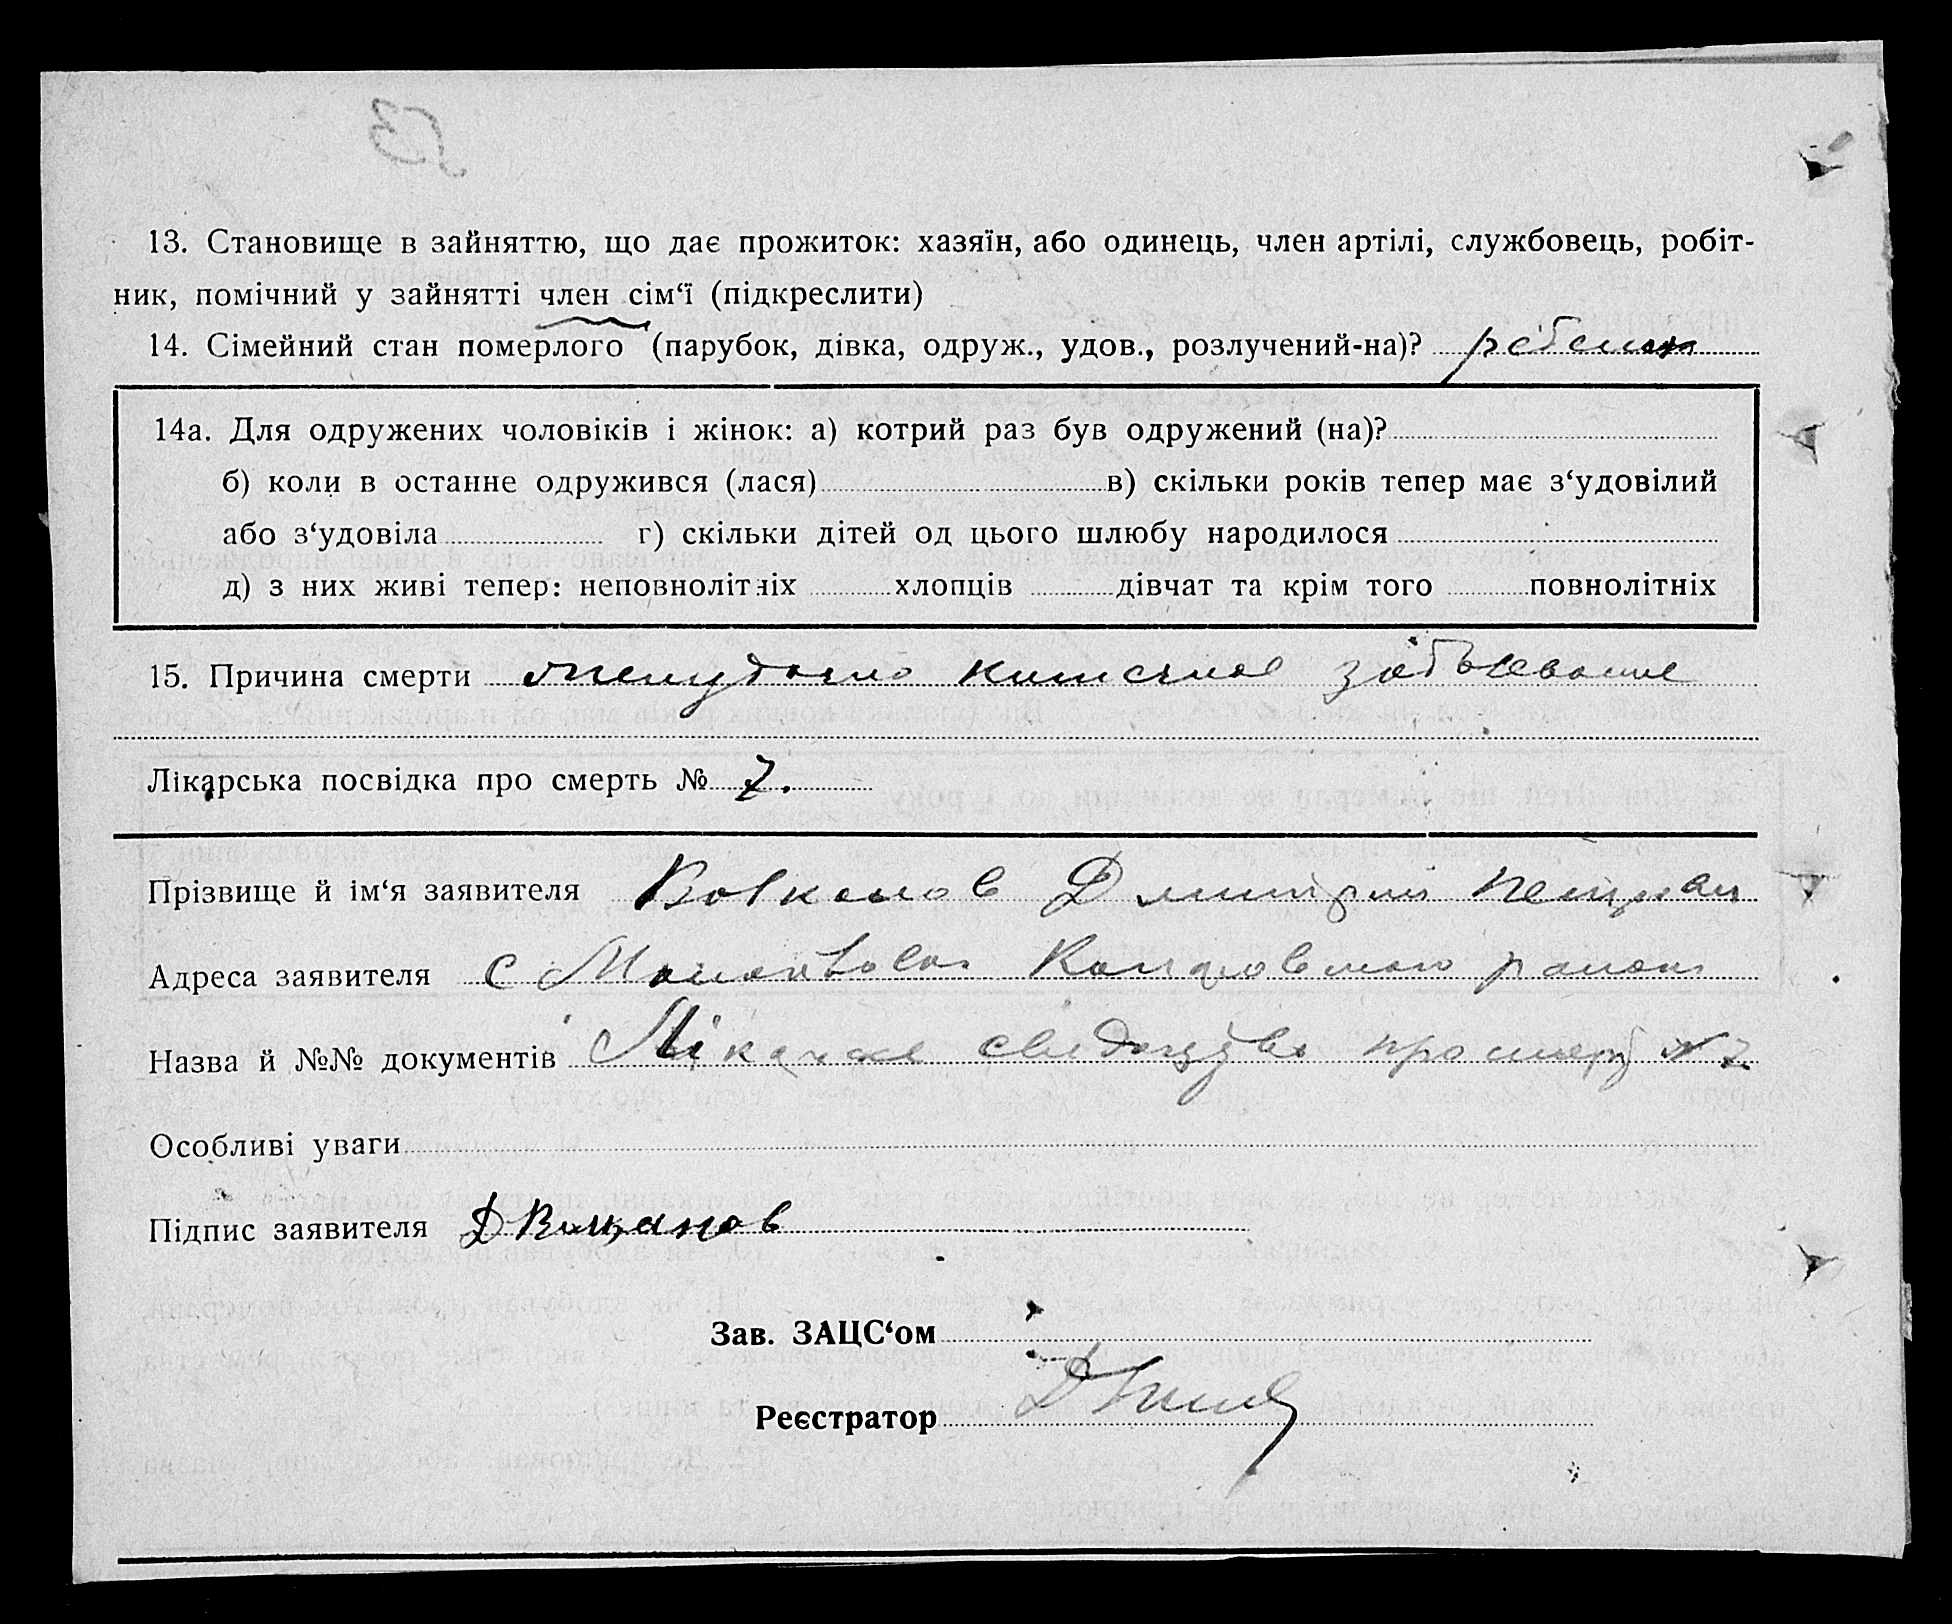 13. Становище в зайняттю, що дає прожиток: хазяїн, або одинець, член артілі, службовець, робіт-
ник, помічний у зайнятті член сім‘ї (підкреслити)
14. Сімейний стан померлого (парубок, дівка, одруж., удов., розлучений-на)? ребенок
14а. Для одружених чоловіків і жінок: а) котрий раз був одружений (на)?
б) коли в останнє одружився (лася) в) скільки років тепер має з‘удовілий
або з‘удовіла г) скільки дітей од цього шлюбу народилося
д) з них живі тепер: неповнолітніх хлопців дівчат та крім того повнолітніх
15. Причина смерти желудочно кишечное заболевание
Лікарська посвідка про смерть № 7.
Прізвище й ім‘я заявителя Дмитрий Петрович
Адреса заявителя с района
Назва й №№ документів Лікарске свидоцтво про смерть № 7
Особливі уваги
Підпис заявителя Д
Зав. ЗАЦС‘ом
Реєстратор